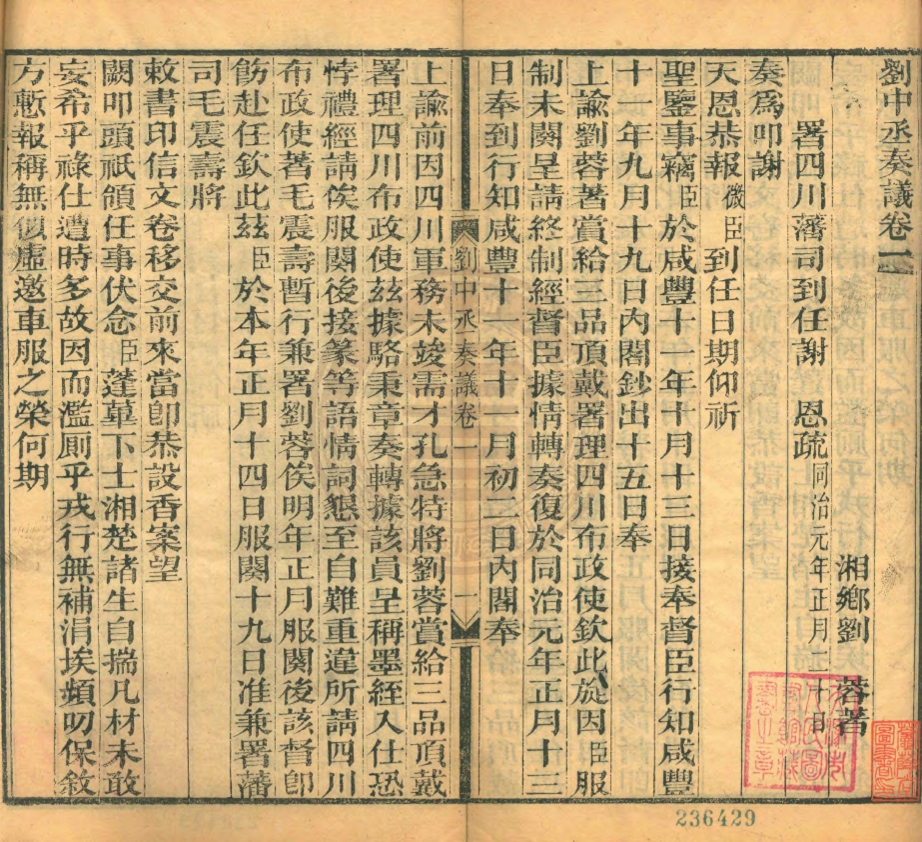 劉中丞奏議卷一
湘鄉劉　蓉著
署四川藩司到任謝　恩疏同治元年正月二十日
奏爲叩謝
天恩恭報微臣到任日期仰祈
聖鑒事竊臣於咸豐十一年十月十三日接奉督臣行知咸豐
十一年九月十九日內閣鈔出十五日奉
上諭劉蓉著賞給三品頂戴署理四川布政使欽此旋因臣服
制未闋呈請終制經督臣據情轉奏復於同治元年正月十三
日奉到行知咸豐十一年十一月初二日內閣奉
劉中丞奏議卷一
一
上諭前因四川軍務未竣需才孔急特將劉蓉賞給三品頂戴
署理四川布政使茲據駱秉章奏轉據該員呈稱墨絰入仕恐
悖禮經請俟服闋後接篆等語情詞懇至自難重違所請四川
布政使著毛震壽暫行兼署劉蓉俟明年正月服闋後該督卽
飭赴任欽此茲臣於本年正月十四日服闋十九日准兼署藩
司毛震壽將
敕書印信文卷移交前來當卽恭設香案望
闕叩頭祇領任事伏念臣蓬蓽下士湘楚諸生自揣凡材未敢
妄希乎祿仕遭時多故因而濫厠乎戎行無補涓埃頻叨保敘
方慙報稱無似虛邀車服之榮何期
236429